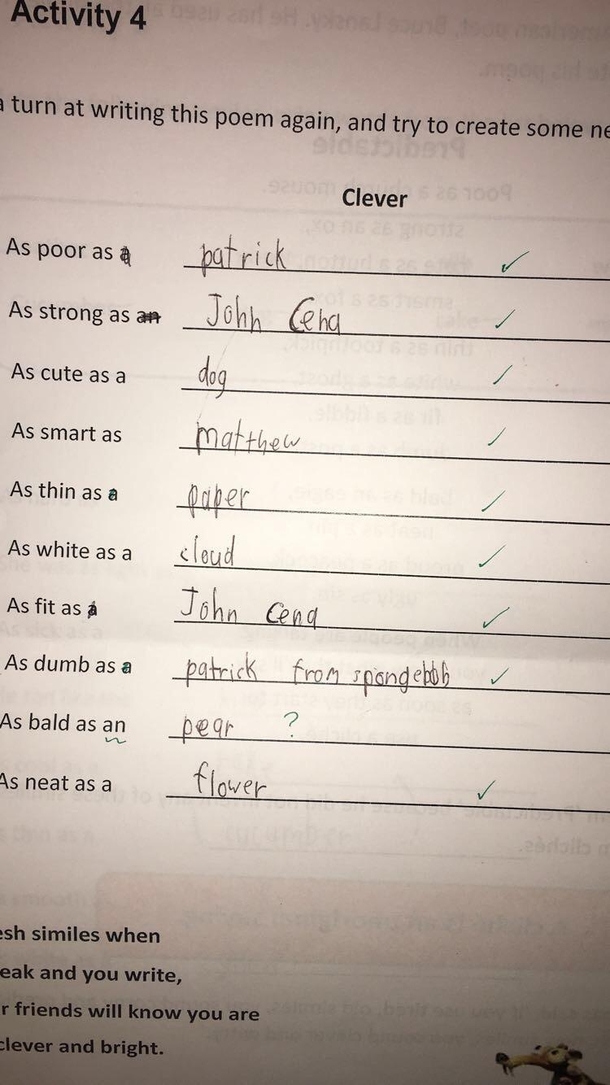 Activity 4
a turn at writing this poem again, and try to create some ne
Clever
As poor as a patrick
As strong as an John Cena
As cute as a dog
As smart as matthew
As thin as a paper
As white as a cloud
As fit as a John Cena
As dumb as a patrick from spongebob
As bald as an pear ?
As neat as a flower
esh similes when
eak and you write,
r friends will know you are
clever and bright.